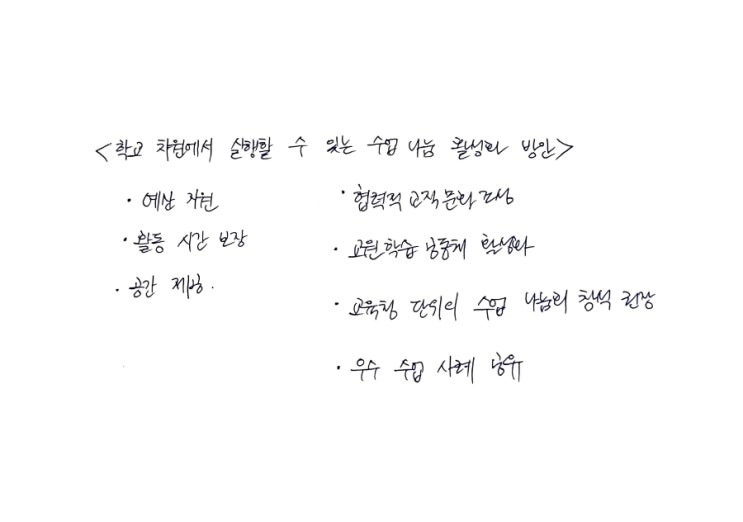 <학교 차원에서 실행할 수 있는 수업 나눔 활성화 방안>
· 예산 지원
· 활동 시간 보장
· 공간 제공.
· 협력적 교직문화 조성
· 교원학습 공동체 활성화
· 교육청 단위의 수업 나눔회 참석 권장
· 우수 수업 사례 공유